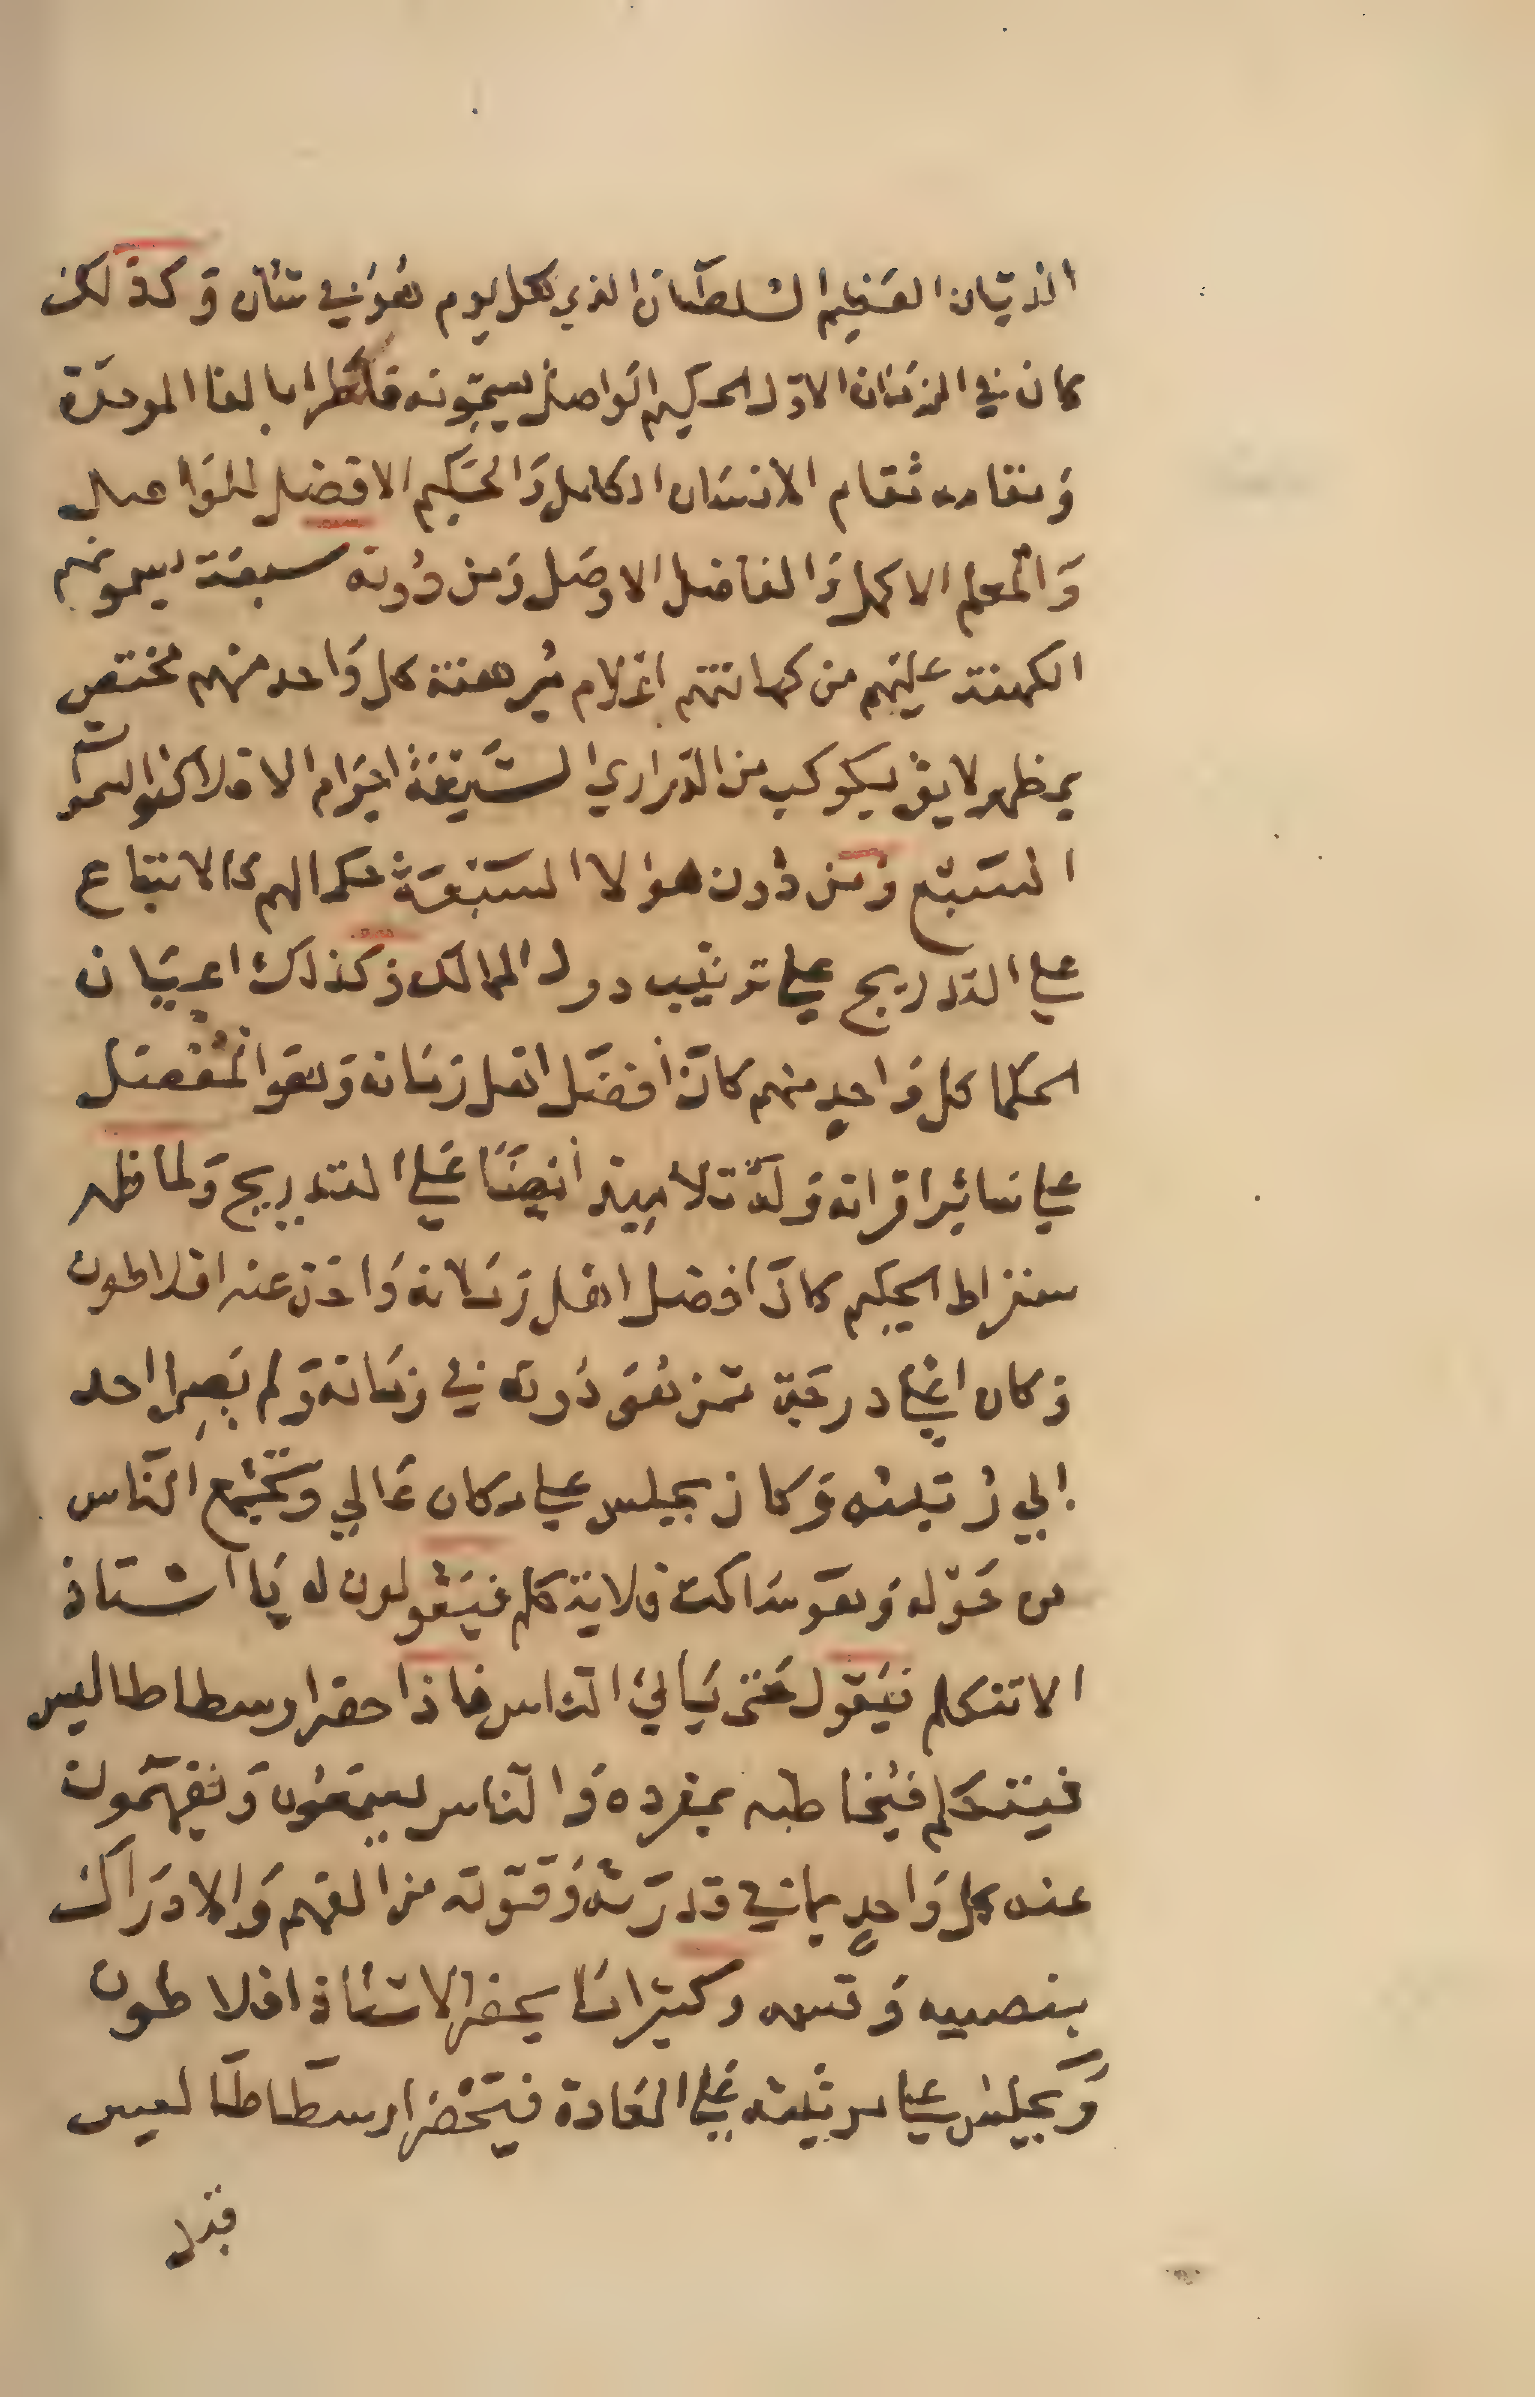 الديان العظيم السلطان الذي كل يوم هو في شأن وكذلك
كان في الزمان الاول الحكيم الواصل يسمونه قلطرا بالفا الموحدة
ومقامه مقام الانسان الكامل والحكيم الافضل المواصل
والمعلم الاكمل والفاضل الاوصل ومن دونه سبعة يسمونهم
الكهنة عليهم من كهانتهم اعلام مبرهنة كل واحد منهم مختص
بمظهر لايق بكوكب من الدراري السبعة اجرام الافلاك والسموات
السبع ومن دون هولا السبعة حكما لهم كالاتباع
علي التدريج علي ترتيب دول الممالك وكذلك اعيان
الحكما كل واحدٍ منهم كان أفضل اهل زمانه وهو المفضل
علي سائر اقرانه وله تلاميذ أيضًا علي التدريج ولما ظهر
سقراط الحكيم كان افضل اهل زمانه واخذ عنه افلاطون
وكان اعلي درجة ممن هو دونه في زمانه ولم يصل احد
الي رتبته وكان يجلس علي مكان عالي وتجتمع الناس
من حوله وهو ساكت فلا يتكلم فيقولون له يا استاذ
الا تتكلم فيقول حتى يأتي الناس فاذا حضر ارسطاطاليس
فيتكلم فيخاطبه بمفرده والناس يسمعون ويفهمون
عنه كل واحدٍ بما في قدرته وقوته من الفهم والادراك
بنصيبه وقسمه وكثيرا ما يحضر الاستاذ افلاطون
ويجلس علي مرتبته علي العادة فيحضر ارسطاطاليس
قبل